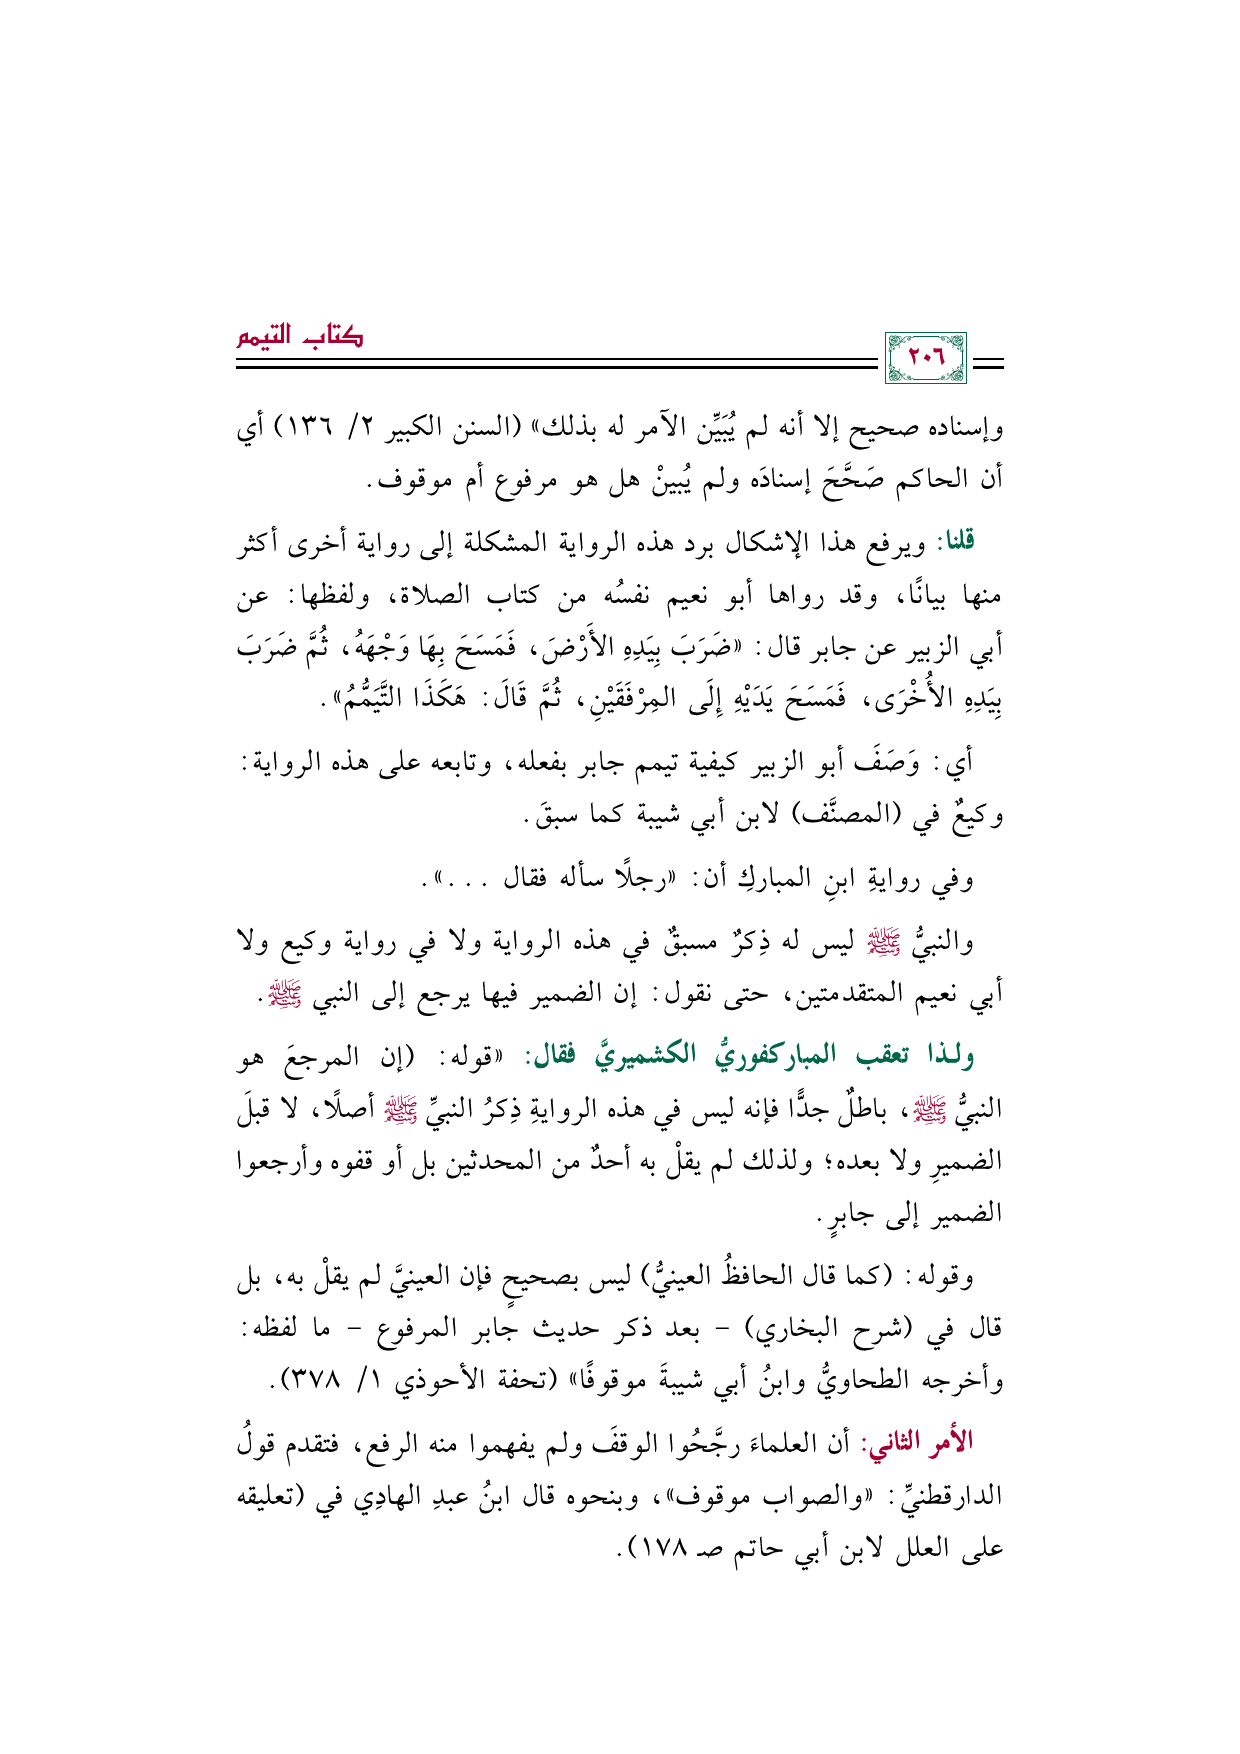 كتاب التيمم
٢٠٦
وإسناده صحيح إلا أنه لم يُبَيِّن الآمر له بذلك» (السنن الكبير ٢/ ١٣٦) أي
أن الحاكم صَحَّحَ إسنادَه ولم يُبينْ هل هو مرفوع أم موقوف.
قلنا: ويرفع هذا الإشكال برد هذه الرواية المشكلة إلى رواية أخرى أكثر
منها بيانًا، وقد رواها أبو نعيم نفسُه من كتاب الصلاة، ولفظها: عن
أبي الزبير عن جابر قال: «ضَرَبَ بِيَدِهِ الأَرْضَ، فَمَسَحَ بِهَا وَجْهَهُ، ثُمَّ ضَرَبَ
بِيَدِهِ الأُخْرَى، فَمَسَحَ يَدَيْهِ إِلَى المِرْفَقَيْنِ، ثُمَّ قَالَ: هَكَذَا التَّيَمُّمُ».
أي: وَصَفَ أبو الزبير كيفية تيمم جابر بفعله، وتابعه على هذه الرواية:
وكيعٌ في (المصنَّف) لابن أبي شيبة كما سبقَ.
وفي روايةِ ابنِ المباركِ أن: «رجلًا سأله فقال ...».
والنبيُّ ﷺ ليس له ذِكرٌ مسبقٌ في هذه الرواية ولا في رواية وكيع ولا
أبي نعيم المتقدمتين، حتى نقول: إن الضمير فيها يرجع إلى النبي ﷺ.
ولذا تعقب المباركفوريُّ الكشميريَّ فقال: «قوله: (إن المرجعَ هو
النبيُّ ﷺ، باطلٌ جدًّا فإنه ليس في هذه الروايةِ ذِكرُ النبيِّ ﷺ أصلًا، لا قبلَ
الضميرِ ولا بعده؛ ولذلك لم يقلْ به أحدٌ من المحدثين بل أو قفوه وأرجعوا
الضمير إلى جابرٍ.
وقوله: (كما قال الحافظُ العينيُّ) ليس بصحيحٍ فإن العينيَّ لم يقلْ به، بل
قال في (شرح البخاري) – بعد ذكر حديث جابر المرفوع – ما لفظه:
وأخرجه الطحاويُّ وابنُ أبي شيبةَ موقوفًا» (تحفة الأحوذي ١/ ٣٧٨).
الأمر الثاني: أن العلماءَ رجَّحُوا الوقفَ ولم يفهموا منه الرفع، فتقدم قولُ
الدارقطنيِّ: «والصواب موقوف»، وبنحوه قال ابنُ عبدِ الهادِي في (تعليقه
على العلل لابن أبي حاتم صـ ١٧٨).